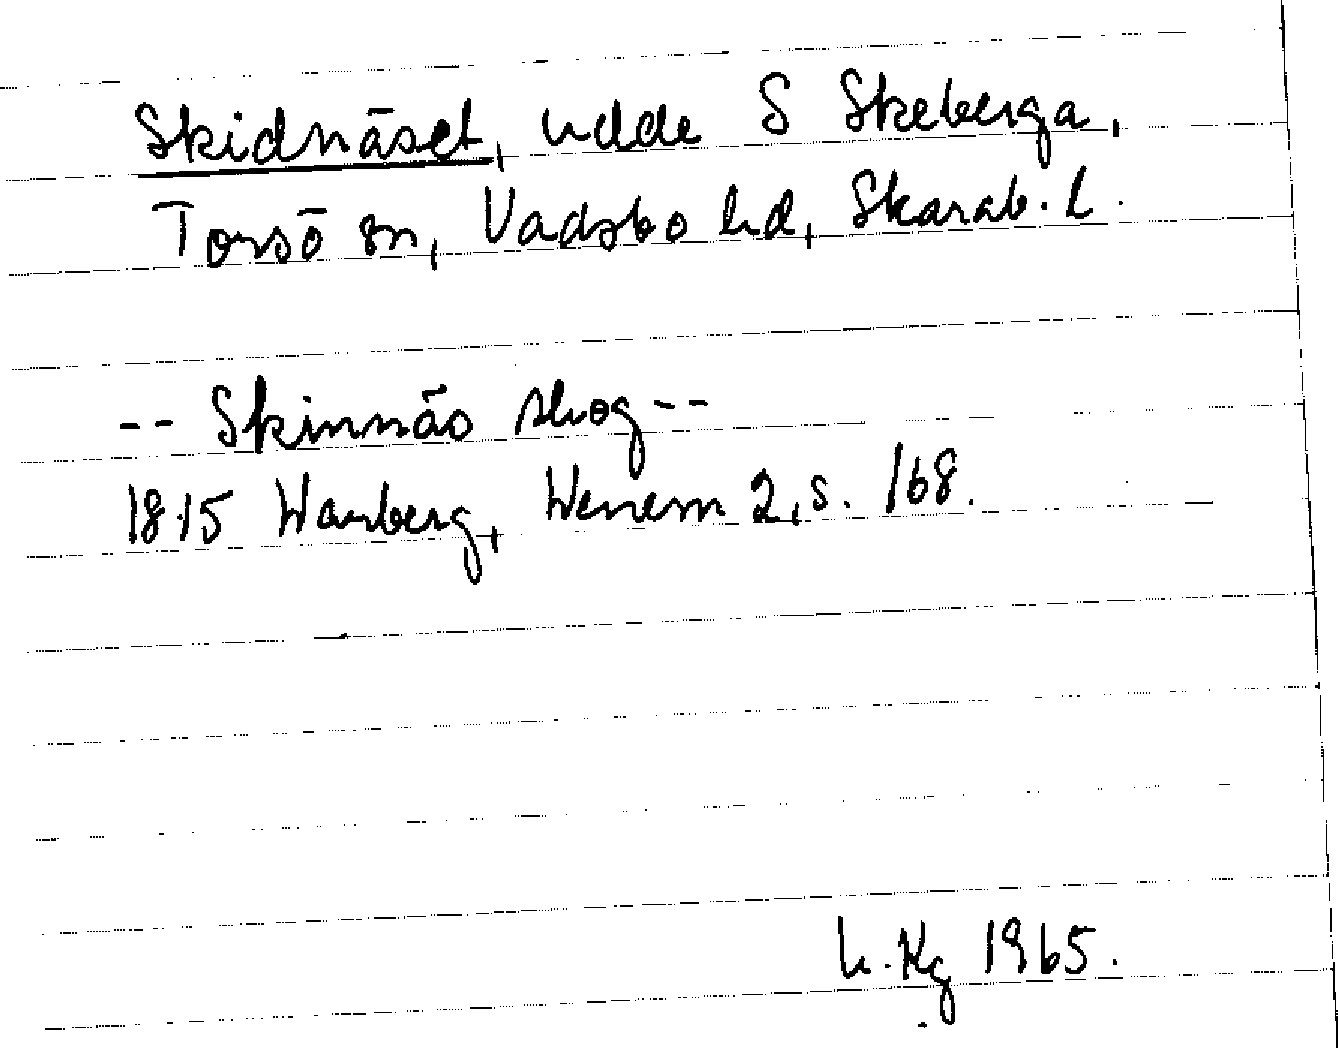 Skidnäset, udde S Skeberga,
Torsö sn, Vadsbo hd, Skarab. L.
-- Skinnäs skog --
1815 Warberg, Wenern 2, s. 168.
L. Kg 1965.